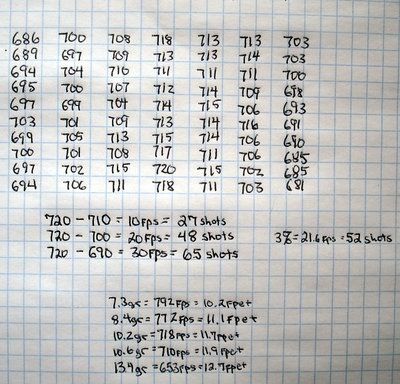 686 700 708 718 713 713 703
689 697 709 713 713 714 703
694 704 710 711 711 711 700
695 700 707 712 714 709 698
697 699 704 714 715 706 693
703 701 709 713 714 716 691
699 705 713 715 714 706 690
700 701 708 717 711 706 685
697 702 715 720 715 702 685
694 706 711 718 711 703 681
720 - 710 = 10 FPS = 27 shots
720 - 700 = 20 FPS = 48 shots 3% = 21.6 FPS = 52 shots
720 - 690 = 30 FPS = 65 shots
7.3gr = 792 FPS = 10.2 Fpet
8.4gr = 772 FPS = 11.1 Fpet
10.2gr = 718 FPS = 11.7 Fpet
10.6gr = 710 FPS = 11.9 Fpet
13.4gr = 653 FPS = 12.7 Fpet